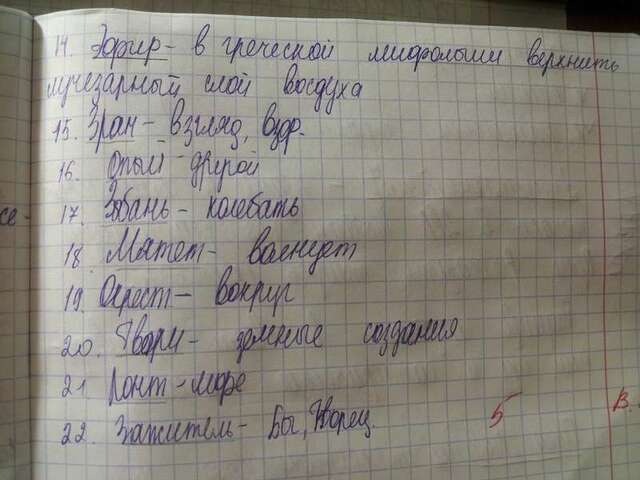 14. Эфир - в греческой мифологии верхнить
лучезарный слой воздуха
15. Зран - взгляд, взор.
16. - другой
17. - колебать
18. Мятет - волнует
19. Окрест - вокруг
20. Твари - земные создания
21. Понт - море
22. Зажитель - Бог, Творец.
5
В